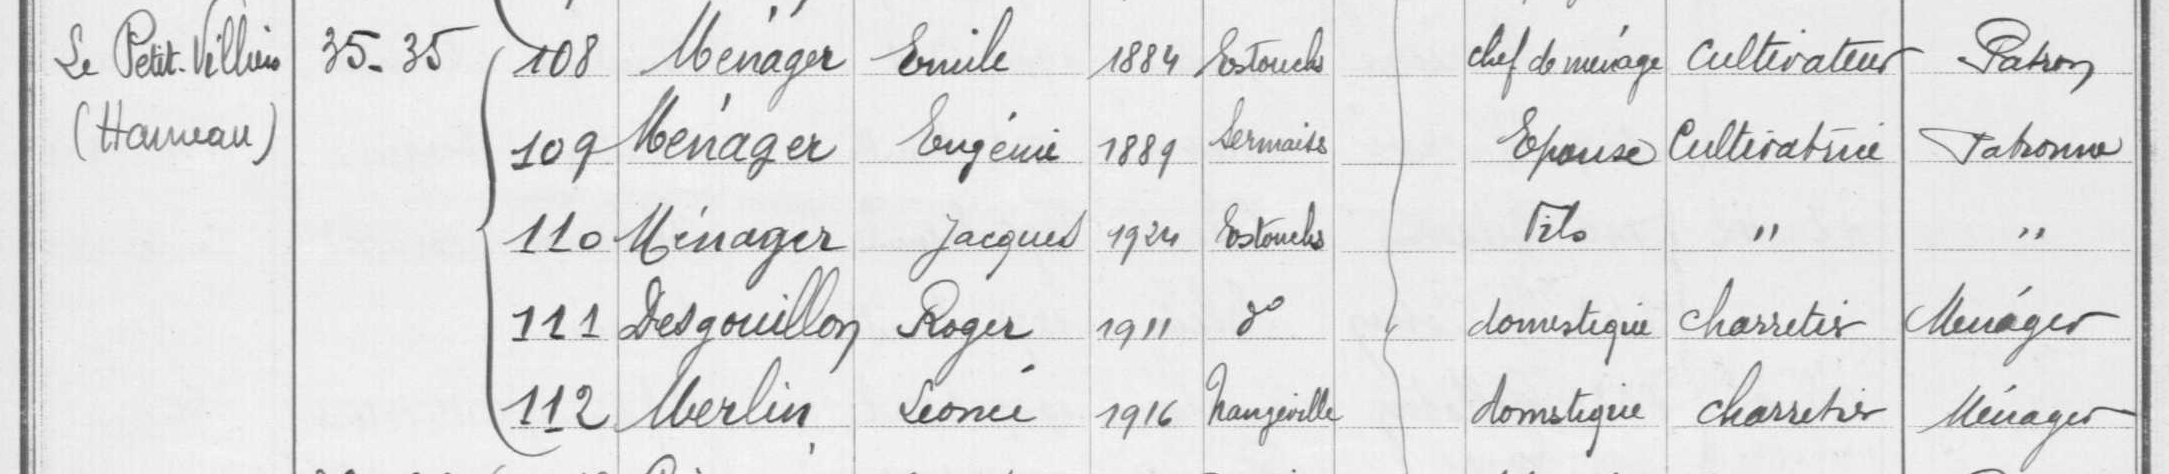 Le Petit-Villiers 35-35 108 Ménager Emile 1884 Estouches chef de ménage Cultivateur Patron
(Hameau) 109 Ménager Eugénie 1889 Sermaises Epouse Cultivatrice Patronne
110 Ménager Jacques 1924 Estouches Fils " "
111 Desgouillon Roger 1911 do domestique charretier Ménager
112 Merlin Léonce 1916 Nangeville domestique charretier Ménager